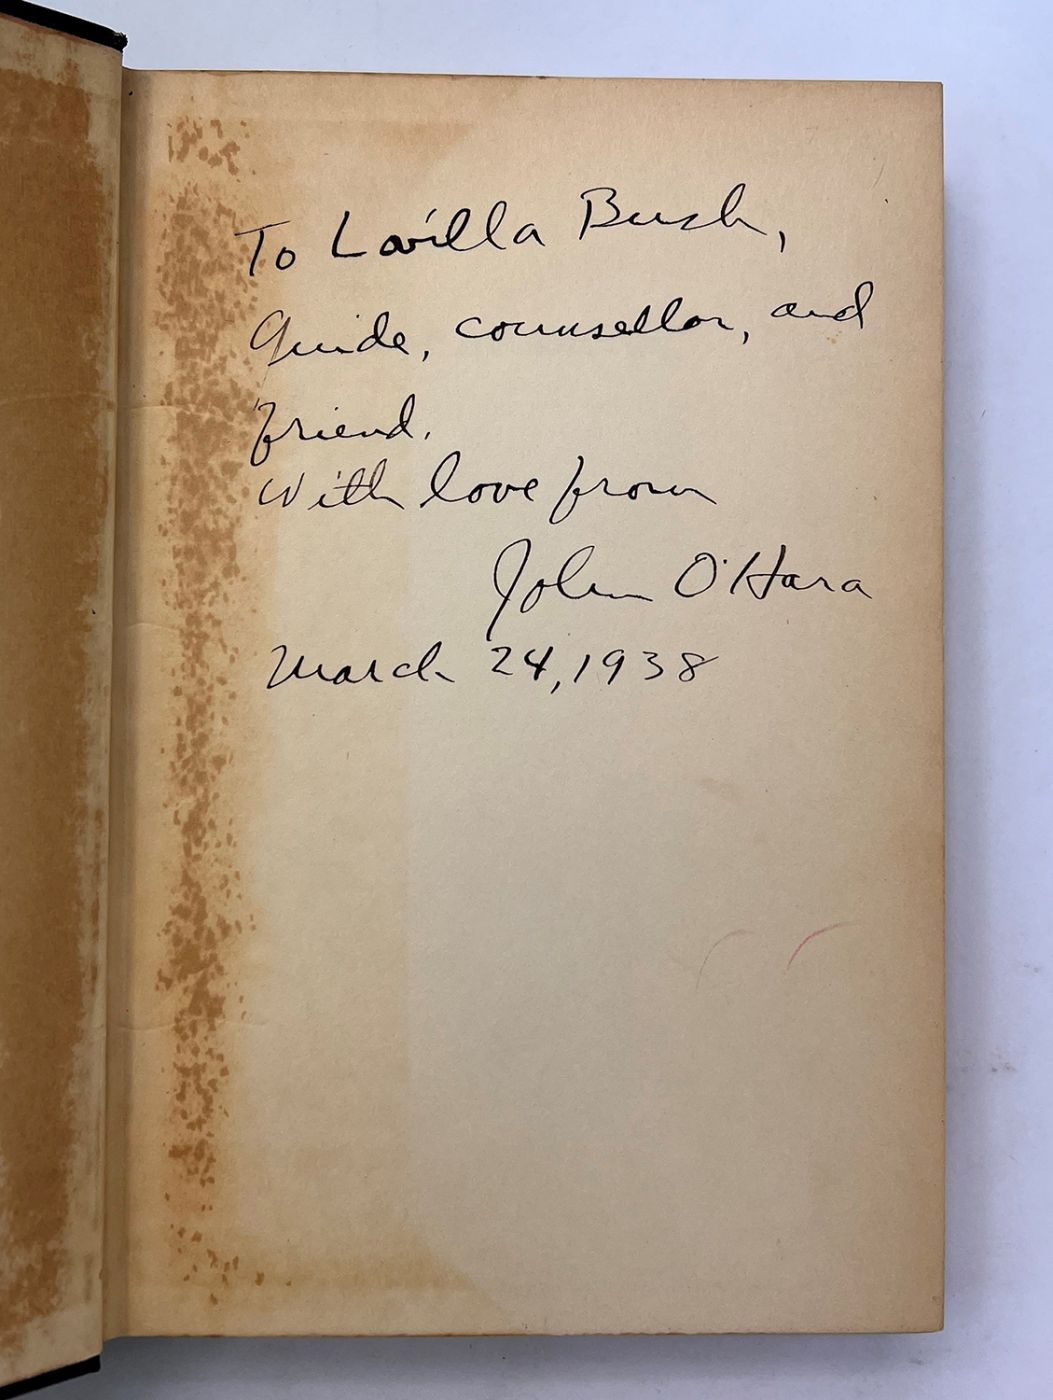 To Lavilla Bush,
Guide, counsellor, and
friend.
With love from
John O'Hara
March 24, 1938